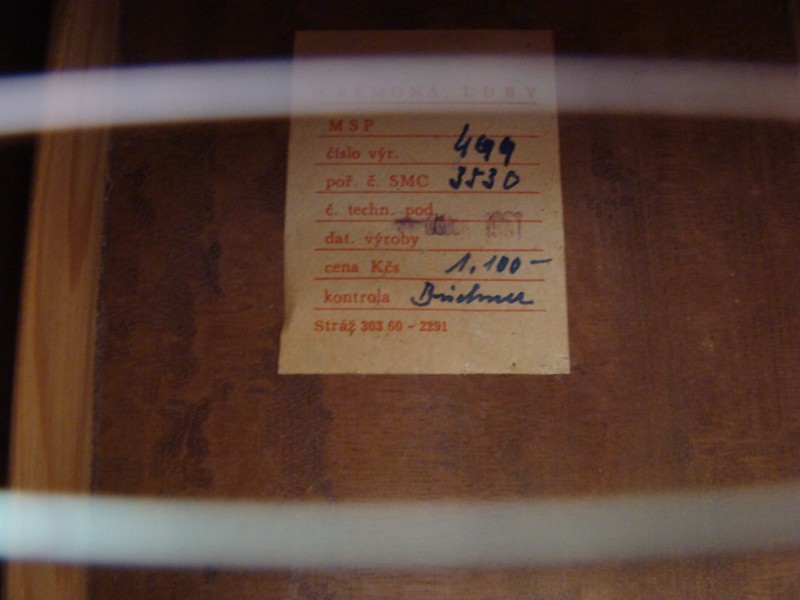 CREMONA LUBY
MSP
číslo výr. 499
poř. č. SMC 3530
č. techn. pod.
dat. výroby 1981
cena Kčs 1.100-
kontrola
Stráž 303 60 - 2291